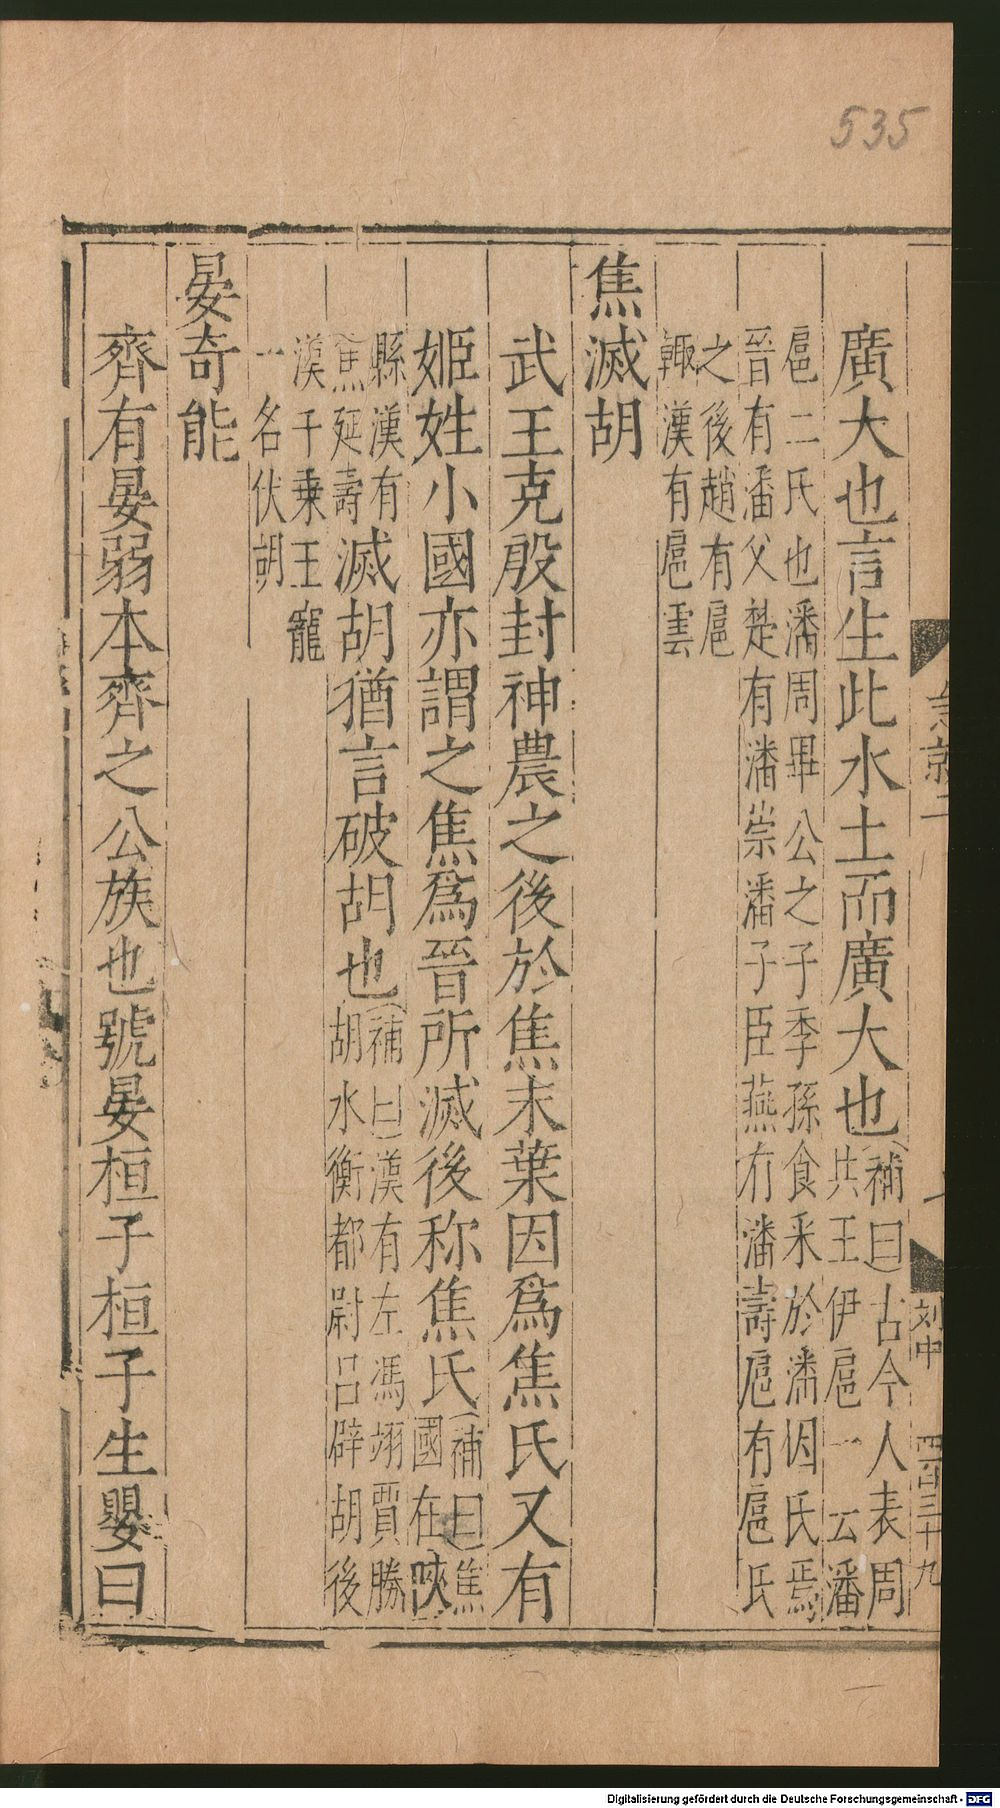 535
廣大也言生此水土而廣大也補曰古今人表周
共王伊扈一云潘
扈二氏也潘周畢公之子季孫食采於潘因氏焉
晉有潘父楚有潘崇潘子臣燕有潘壽扈有扈氏
之後趙有扈
輒漢有扈雲
焦滅胡
武王克殷封神農之後於焦末葉因爲焦氏又有
姬姓小國亦謂之焦爲晉所滅後称焦氏補曰焦
國在陜
縣漢有
焦延壽
滅胡猶言破胡也補曰漢有左馮翊賈勝
胡水衡都尉吕辟胡後
漢千乗王寵
一名伏胡
晏奇能
齊有晏弱本齊之公族也號晏桓子桓子生嬰曰
急就二
刘中
四百三十九
Digitalisierung gefördert durch die Deutsche Forschungsgemeinschaft - DFG